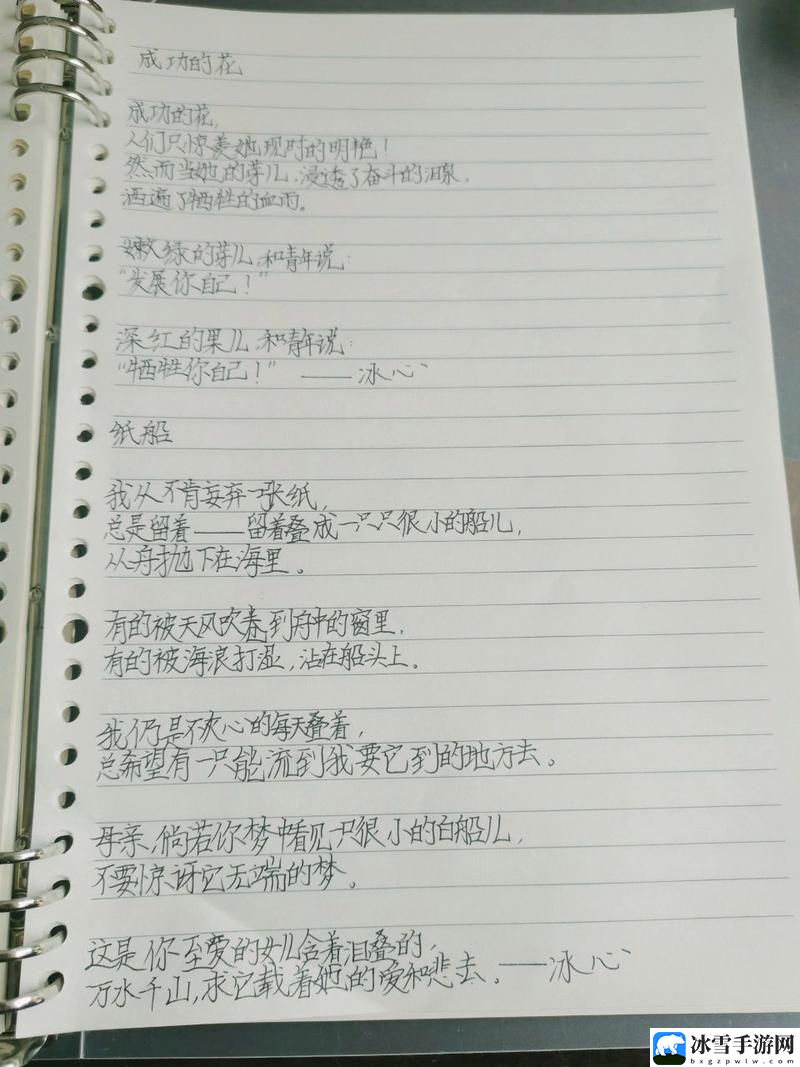 成功的花
成功的花,
人们只惊羡她现时的明艳!
然而当她的芽儿,浸透了奋斗的泪泉,
洒遍了牺牲的血雨。
嫩绿的芽儿,和青年说:
“发展你自己!”
深红的果儿,和青年说:
“牺牲你自己!” ——冰心
纸船
我从不肯妄弃一张纸,
总是留着——留着叠成一只只很小的船儿,
从舟抛下在海里。
有的被天风吹卷到舟中的窗里,
有的被海浪打湿,沾在船头上。
我仍是不灰心的每天叠着,
总希望有一只能流到我要它到的地方去。
母亲,倘若你梦中看见一只很小的白船儿,
不要惊讶它无端的梦。
这是你至爱的女儿含着泪叠的,
万水千山,求它载着她的爱和悲去。——冰心
冰雪手游网
bxgzpwlw.com